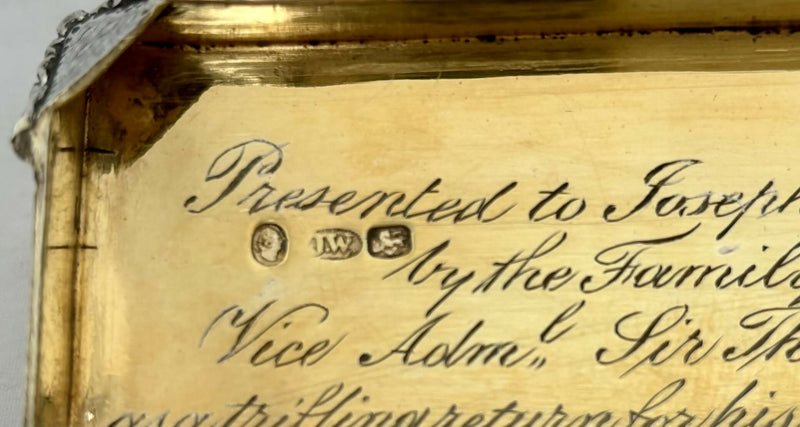 Presented to Joseph
IW
by the Family
Vice Adm.l Sir Th
as a trifling return for his